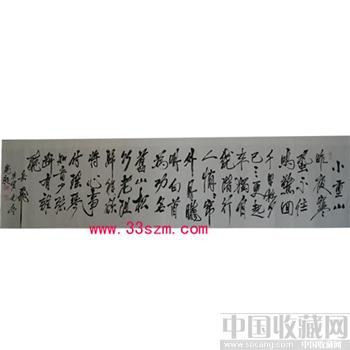 小重山
昨夜寒
蛩不住
鳴驚回
千里夢
已三更起
来獨自
繞階行
人悄悄帘
外月朧
明白首
為功名
舊山松
竹老阻
歸程欲
將心事
付瑶琴
知音少弦
断有誰
聽
岳飛
www.33szm.com
中国收藏网
www.socang.com